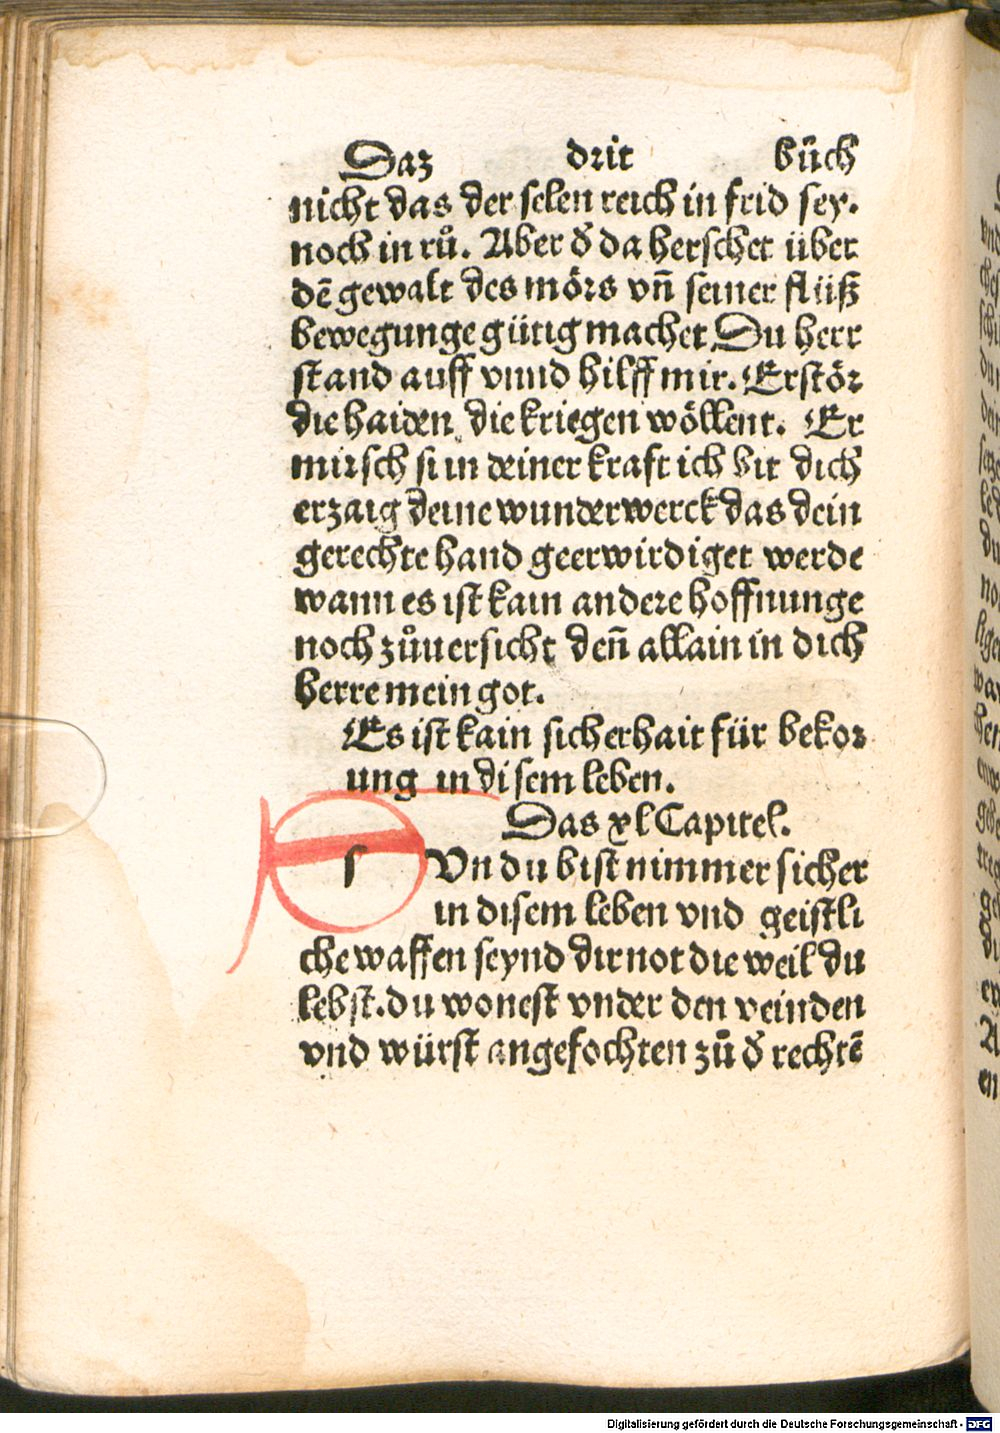 Daz drit bůch
nicht das der selen reich in frid sey.
noch in rů. Aber d̕ da herschet über
dē gewalt des mörs vn̄ seiner flüß
bewegunge gütig machet Du herr
stand auff vnnd hilff mir. Erstör
die haiden die kriegen wöllent. Er
mirsch si in deiner kraft ich bit dich
erzaig deine wunderwerck das dein
gerechte hand geerwirdiget werde
wann es ist kain andere hoffnunge
noch zůuersicht den̄ allain in dich
herre mein got.
Es ist kain sicherhait für bekor
ung in disem leben.
Das xl Capitel.
s Vn du bist nimmer sicher
in disem leben vnd geistli
che waffen seynd dir not die weil du
lebst. du wonest vnder den veinden
vnd würst angefochten zů d̕ rechtē
Digitalisierung gefördert durch die Deutsche Forschungsgemeinschaft - DFG